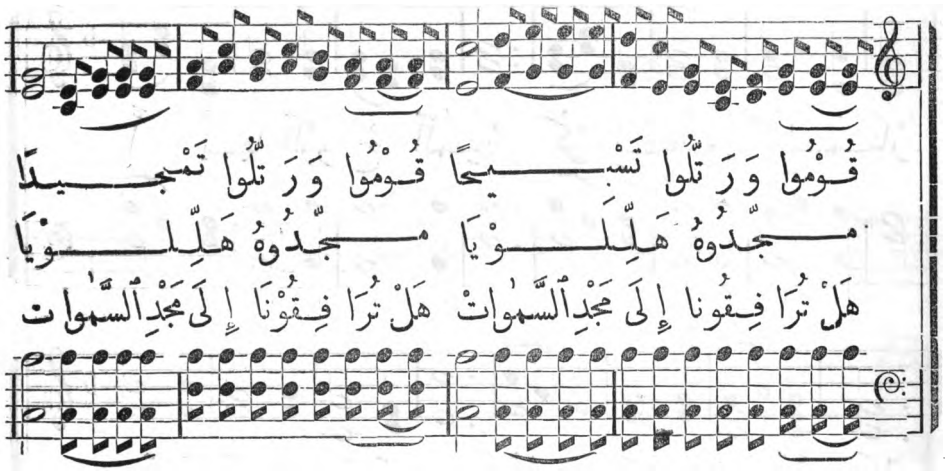 قُومُوا وَرَتِّلُوا تَسْبِيحًا قُوْمُوا وَرَتِّلُوا تَمْجِيدًا
مَجِّدُوهُ هَلِّلُوْيَا مَجِّدُوهُ هَلِّلُوْيَا
هَلْ تُرَافِقُونَا إِلَى مَجْدِ ٱلسَّمٰوَاتْ هَلْ تُرَافِقُوْنَا إِلَى مَجْدِ ٱلسَّمٰوَاتْ